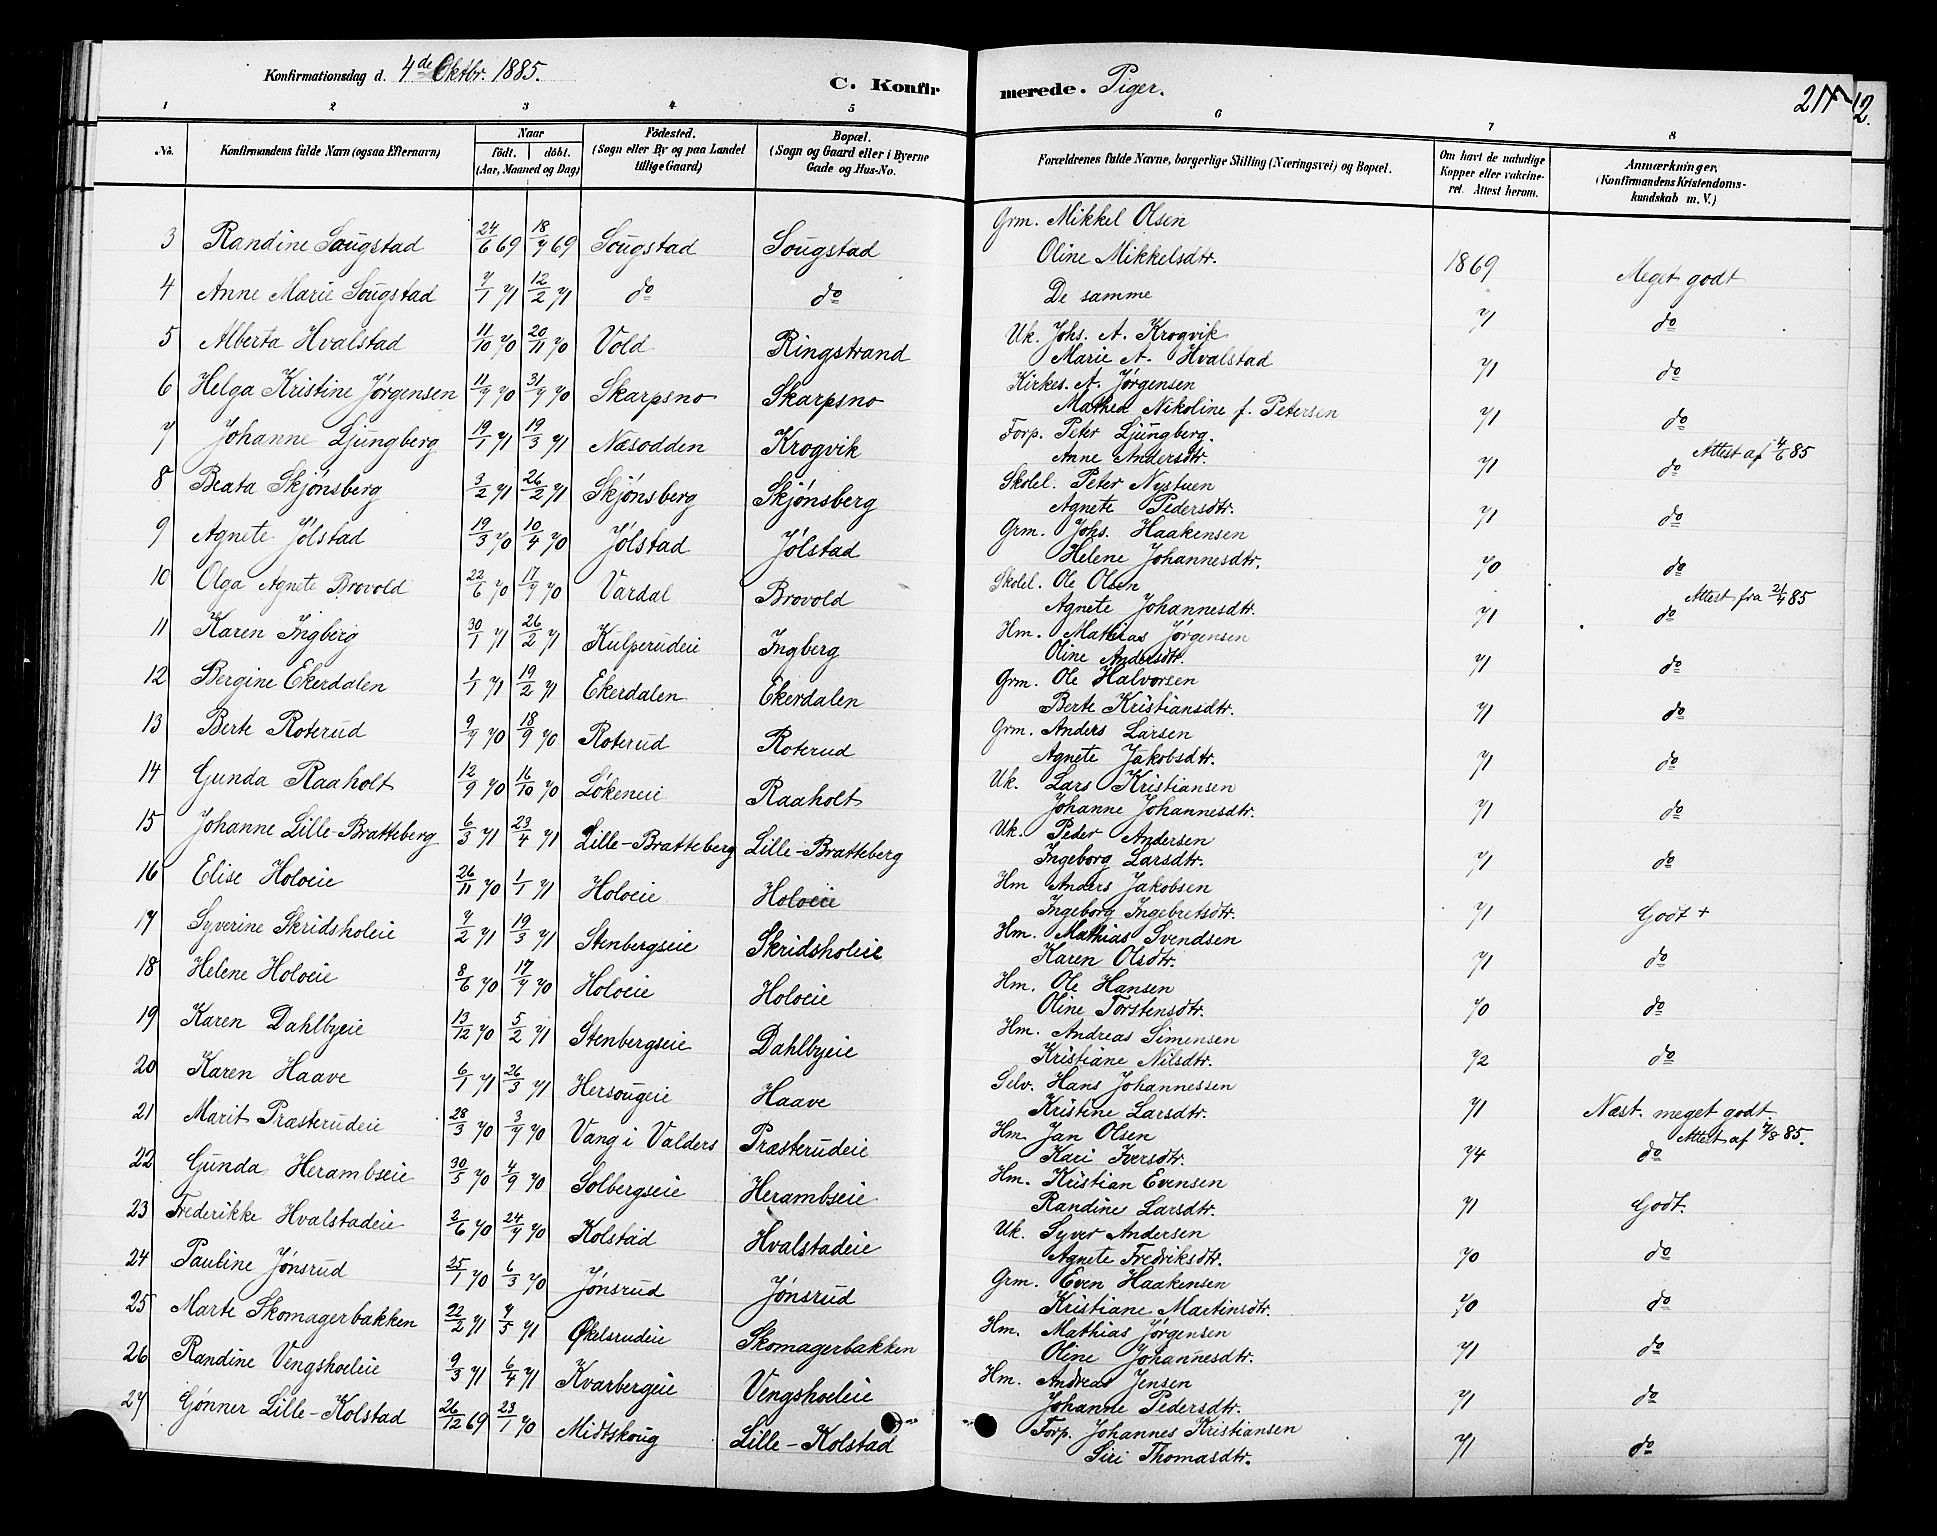 Konfirmationsdag d. 4de Oktbr. 1885.
C. Konfirmerede. Piger.
217
12.
1 2 3 4 5 6 7 8
No. Konfirmandens fulde Navn (ogsaa Efternavn) Naar født. døbt. (Aar, Maaned og Dag) Fødested. (Sogn eller By og paa Landet tillige Gaard) Bopæl. (Sogn og Gaard eller i Byerne Gade og Hus-No. Forældrenes fulde Navne, borgerlige Stilling (Næringsvei) og Bopæl. Om havt de naturlige Kopper eller vakcineret. Attest herom. Anmærkninger, (Konfirmandens Kristendomskundskab m. V.)
3 Randine Sougstad 24/6 69 18/7 69 Sougstad Sougstad Grm. Mikkel Olsen
Oline Mikkelsdtr. 1869 Meget godt
4 Anne Marie Sougstad 7/1 71 12/2 71 do do De samme 71 do
5 Alberta Hvalstad 11/10 70 20/11 70 Vold Ringstrand Uk. Johs. A. Krogvik
Marie A. Hvalstad 71 do
6 Helga Kristine Jørgensen 11/9 70 31/7 70 Skarpsno Skarpsno Kirkes. A. Jørgensen
Mathea Nikoline f. Petersen 71 do
7 Johanne Ljungberg 19/1 71 19/3 71 Næsodden Krogvik Forp. Peter Ljungberg.
Anne Andersdtr. 71 do Attest af 4/6 85
8 Beata Skjønsberg 3/2 71 26/2 71 Skjønsberg Skjønsberg Skolel. Peter Nystuen
Agnete Pedersdtr. 71 do
9 Agnete Jølstad 19/3 70 10/4 70 Jølstad Jølstad Grm. Johs. Haakensen
Helene Johannesdtr. 70 do
10 Olga Agnete Brovold 22/6 70 17/7 70 Vardal Brovold Skolel. Ole Olsen
Agnete Johannesdtr. 71 do Attest fra 21/4 85
11 Karen Ingberg 30/1 71 26/2 71 Kulperudeie Ingberg Hm. Mathias Jørgensen
Oline Andersdtr. 71 do
12 Bergine Ekerdalen 1/1 71 19/2 71 Ekerdalen Ekerdalen Grm. Ole Halvorsen
Berte Kristiansdtr. 71 do
13 Berte Roterud 9/9 70 18/9 70 Roterud Roterud Grm. Anders Larsen
Agnete Jakobsdtr. 71 do
14 Gunda Raaholt 12/9 70 16/10 70 Løkeneie Raaholt Uk. Lars Kristiansen
Johanne Johannesdtr. 71 do
15 Johanne Lille-Bratteberg 6/3 71 23/4 71 Lille-Bratteberg Lille-Bratteberg Uk. Peder Andersen
Ingeborg Larsdtr. 71 do
16 Elise Holoeie 26/11 70 1/1 71 Holoeie Holoeie Hm Anders Jakobsen
Ingeborg Ingebretsdtr. 71 Godt +
17 Syverine Skridsholeie 7/2 71 19/3 71 Stenbergseie Skridsholeie Hm. Mathias Svendsen
Karen Olsdtr. 71 do
18 Helene Holoeie 8/6 70 17/7 70 Holoeie Holoeie Hm. Ole Hansen
Oline Torstensdtr. 70 do
19 Karen Dahlbyeie 13/12 70 5/2 71 Stenbergseie Dahlbyeie Hm. Andreas Simensen
Kristiane Nilsdtr. 72 do
20 Karen Haave 6/1 71 26/3 71 Hersougeie Haave Selv. Hans Johannessen
Kristine Larsdtr. 71 Næst. meget godt
21 Marit Præsterudeie 28/3 70 3/7 70 Vang i Valders Præsterudeie Hm. Jan Olsen
Kari Iversdtr. 74 do Attest af 7/8 85.
22 Gunda Herambseie 30/5 70 4/9 70 Solbergseie Herambseie Hm. Kristian Evensen
Randine Larsdtr. 71 Godt.
23 Frederikke Hvalstadeie 2/6 70 24/7 70 Kolstad Hvalstadeie Uk. Syver Andersen
Agnete Fredriksdtr. 70 do
24 Pauline Jønsrud 25/1 70 6/3 70 Jønsrud Jønsrud Grm. Even Haakensen
Kristiane Martinsdtr. 70 do
25 Marte Skomagerbakken 22/2 71 7/5 71 Økelsrudeie Skomagerbakken Hm. Mathias Jørgensen
Oline Johannesdtr. 71 do
26 Randine Vengshoeleie 9/3 71 6/4 71 Kvarbergeie Vengshoeleie Hm. Andreas Jensen
Johanne Pedersdtr. 71 do
27 Gønner Lille-Kolstad 26/12 69 23/1 70 Midtskoug Lille-Kolstad Forp. Johannes Kristiansen
Siri Thomasdtr. 71 do